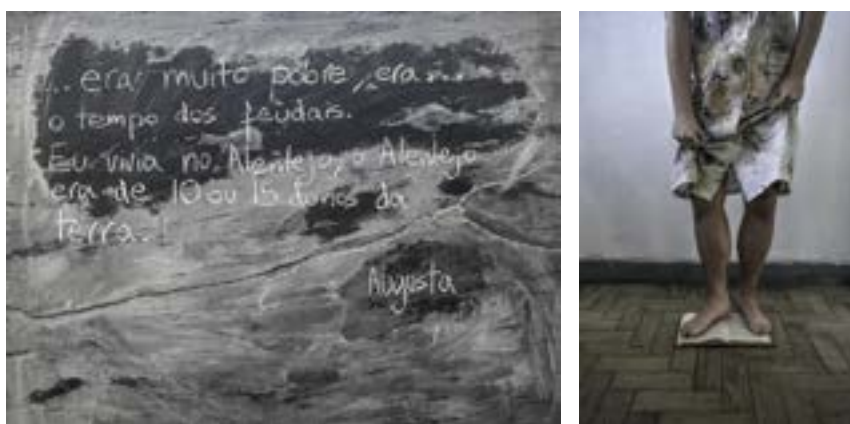 ...era muito pobre, era...
o tempo dos feudais.
Eu vivia no Alentejo, o Alentejo
era de 10 ou 15 donos da
terra.
Augusta